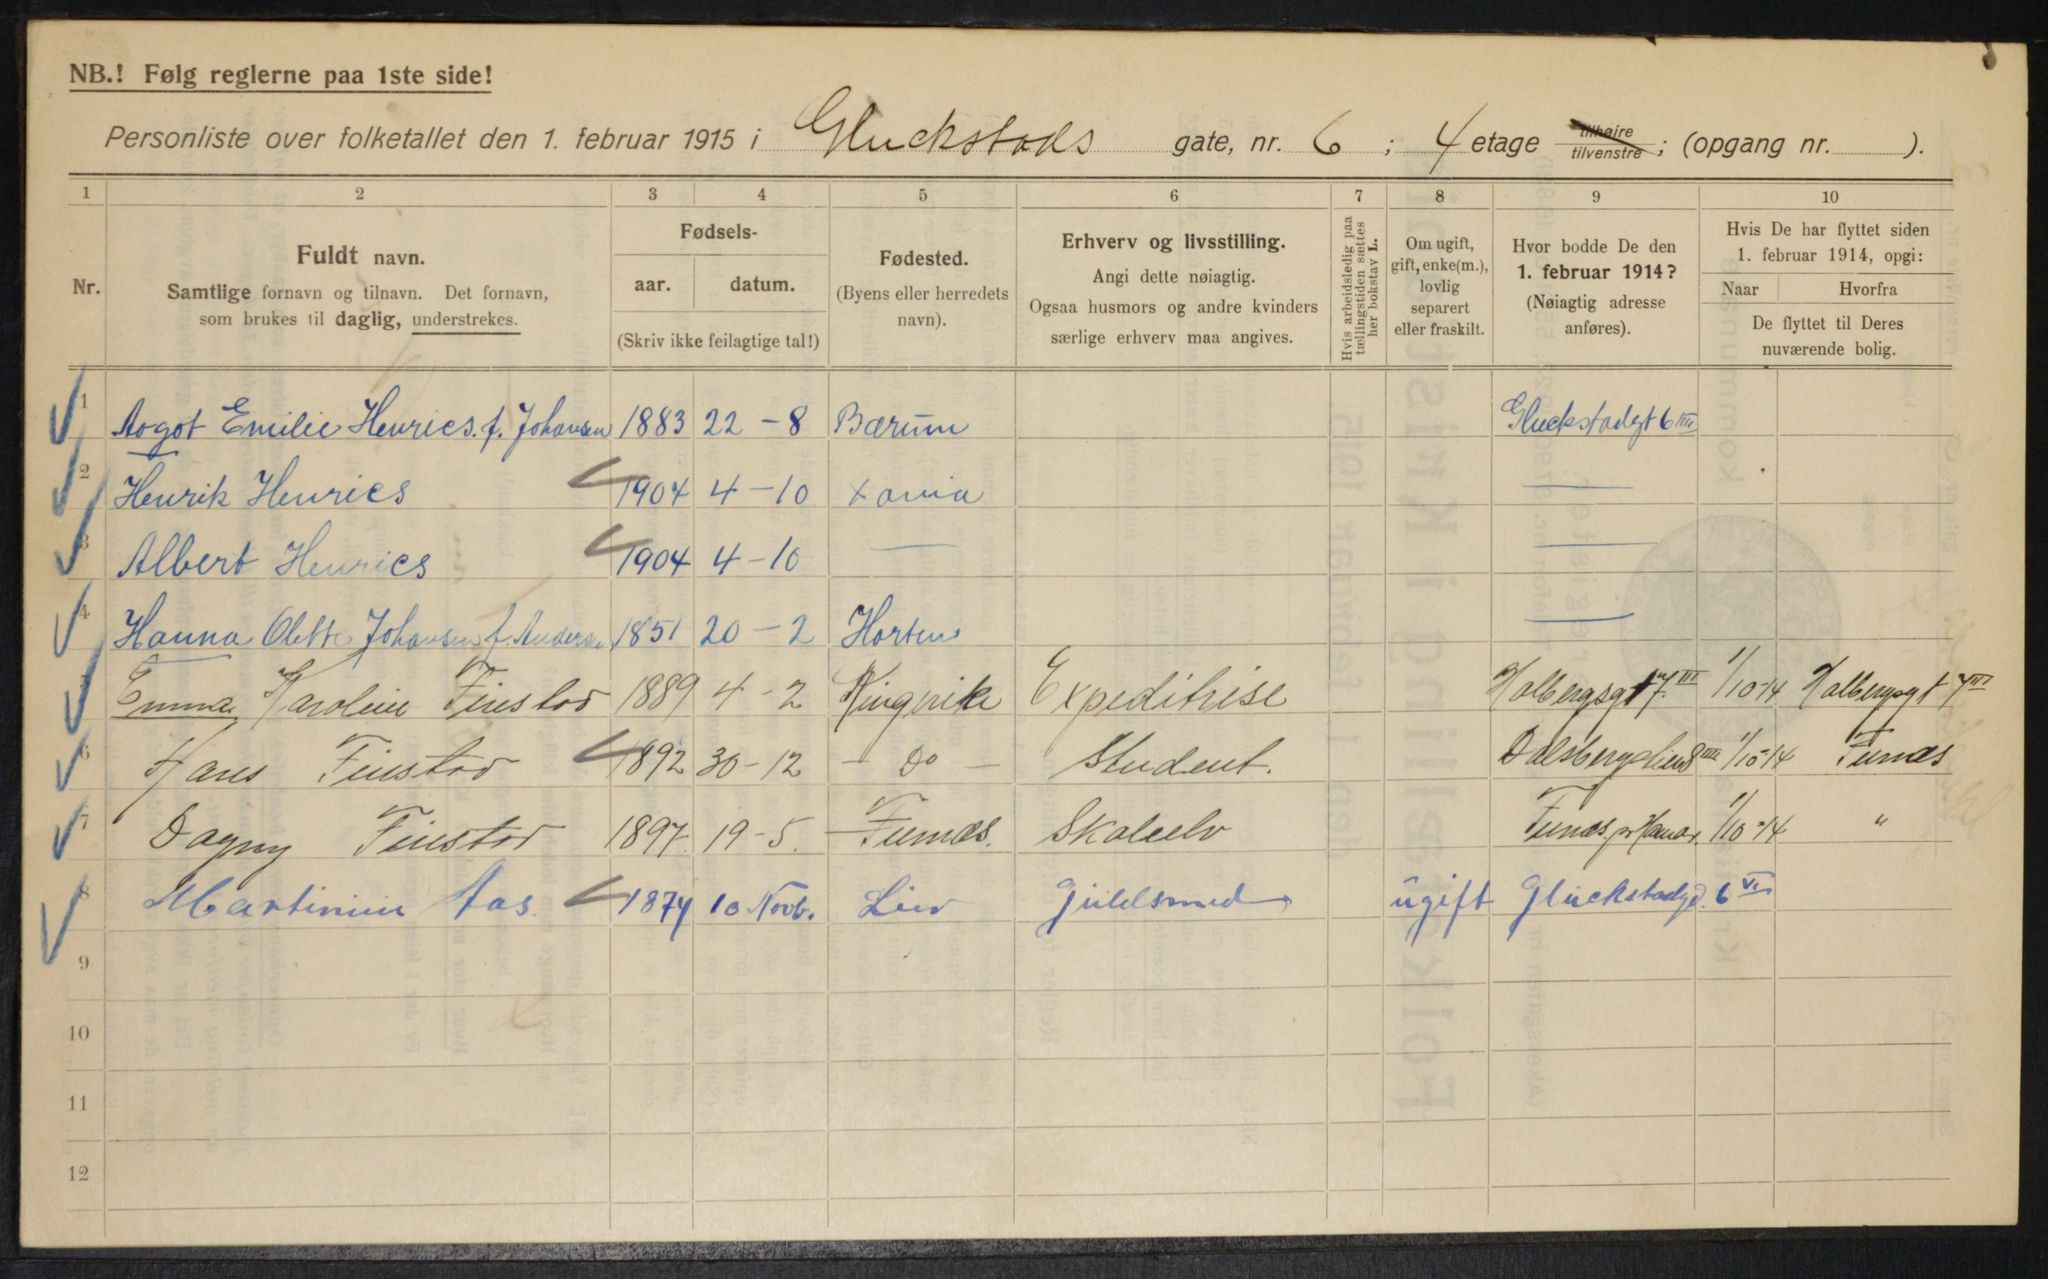 NB.! Følg reglerne paa 1ste side!
Personliste over folketallet den 1. februar 1915 i Gluckstads gate, nr. 6 ; 4 etage tilhøire tilvenstre ; (opgang nr. ).
1 2 3 4 5 6 7 8 9 10
Nr.
Fuldt navn.
Samtlige fornavn og tilnavn. Det fornavn,
som brukes til daglig, understrekes.
Fødsels-
aar. datum.
(Skriv ikke feilagtige tal!)
Fødested.
(Byens eller herredets
navn).
Erhverv og livsstilling.
Angi dette nøiagtig.
Ogsaa husmors og andre kvinders
særlige erhverv maa angives.
Hvis arbeidsledig paa
tællingstiden sættes
her bokstav L.
Om ugift,
gift, enke(m.),
lovlig
separert
eller fraskilt.
Hvor bodde De den
1. februar 1914?
(Nøiagtig adresse
anføres).
Hvis De har flyttet siden
1. februar 1914, opgi:
Naar Hvorfra
De flyttet til Deres
nuværende bolig.
1 Aagot Emilie Henrics. f. Johansen 1883 22 - 8 Bærum Gluckstadgt 6 IIII
2 Henrik Henrics 1904 4 - 10 Xania —
3 Albert Henrics 1904 4 - 10 — —
4 Hanna Olette Johansen f. Andersen 1851 20 - 2 Horten —
5 Emma Karoline Finstad 1889 4 - 2 Ringerike Expeditrise Holbergsgt 7 III 1/10-14 Holbergsgt 7 III
6 Hans Finstad 1892 30 - 12 - Do - Student. Dalsbergstien 8 III 1/10-14 Furnæs
7 Dagny Finstad 1897. 19 - 5. Furnæs. Skoleelv Furnæs pr Hamar. 1/10-14 "
8 Martinius Aas. 1874 10 Novb. Lier Guldsmed ugift Gluckstadgd. 6 VI
9
10
11
12